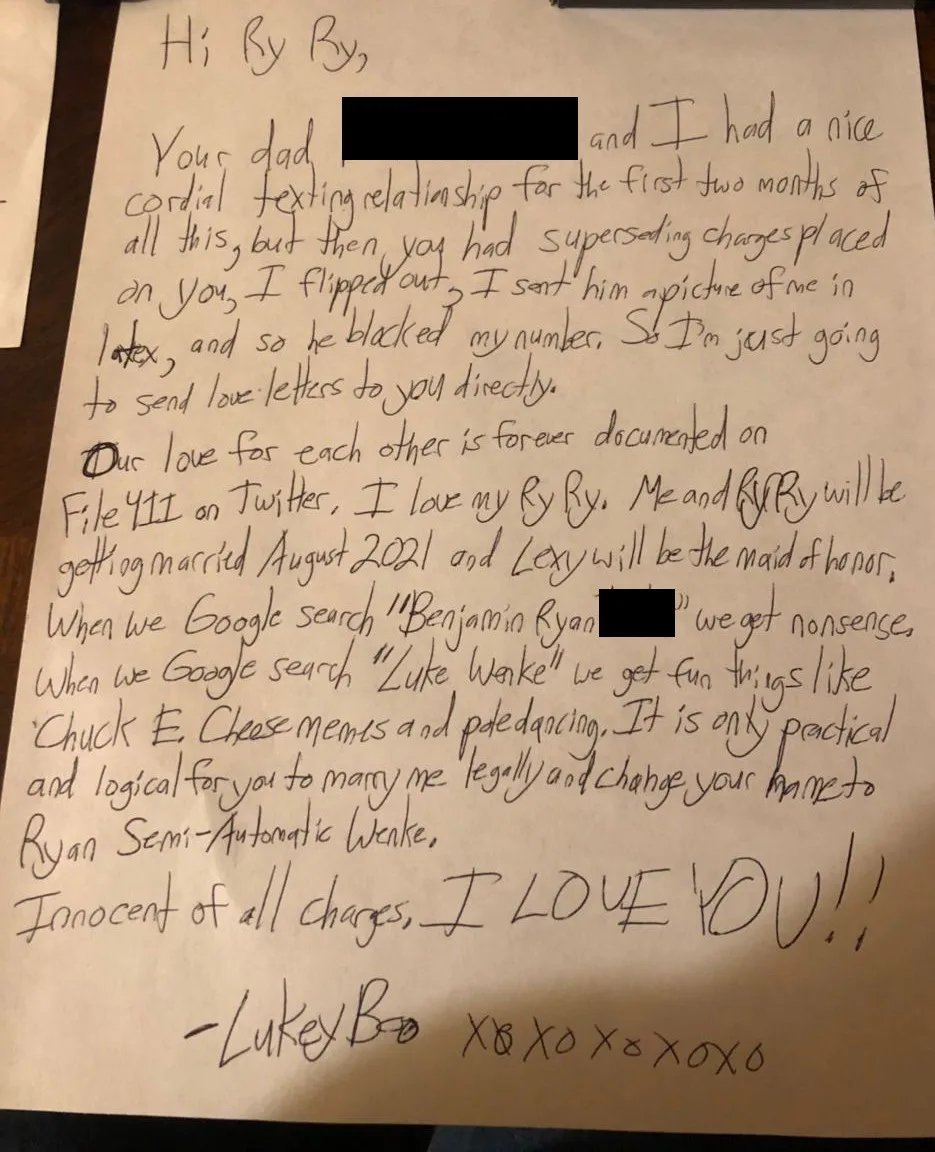 Hi Ry Ry,
Your dad and I had a nice
cordial texting relationship for the first two months of
all this, but then, you had superseding charges placed
on you, I flipped out, I sent him a picture of me in
latex, and so he blocked my number. So I'm just going
to send love letters to you directly.
Our love for each other is forever documented on
File 411 on Twitter. I love my Ry Ry. Me and Ry Ry will be
getting married August 2021 and Lexy will be the maid of honor.
When we Google search "Benjamin Ryan " we get nonsense.
When we Google search "Luke Wenke" we get fun things like
Chuck E. Cheese memes and pole dancing. It is only practical
and logical for you to marry me legally and change your name to
Ryan Semi-Automatic Wenke.
Innocent of all charges. I LOVE YOU!!
-Lukey Boo XOXOXOXOXO